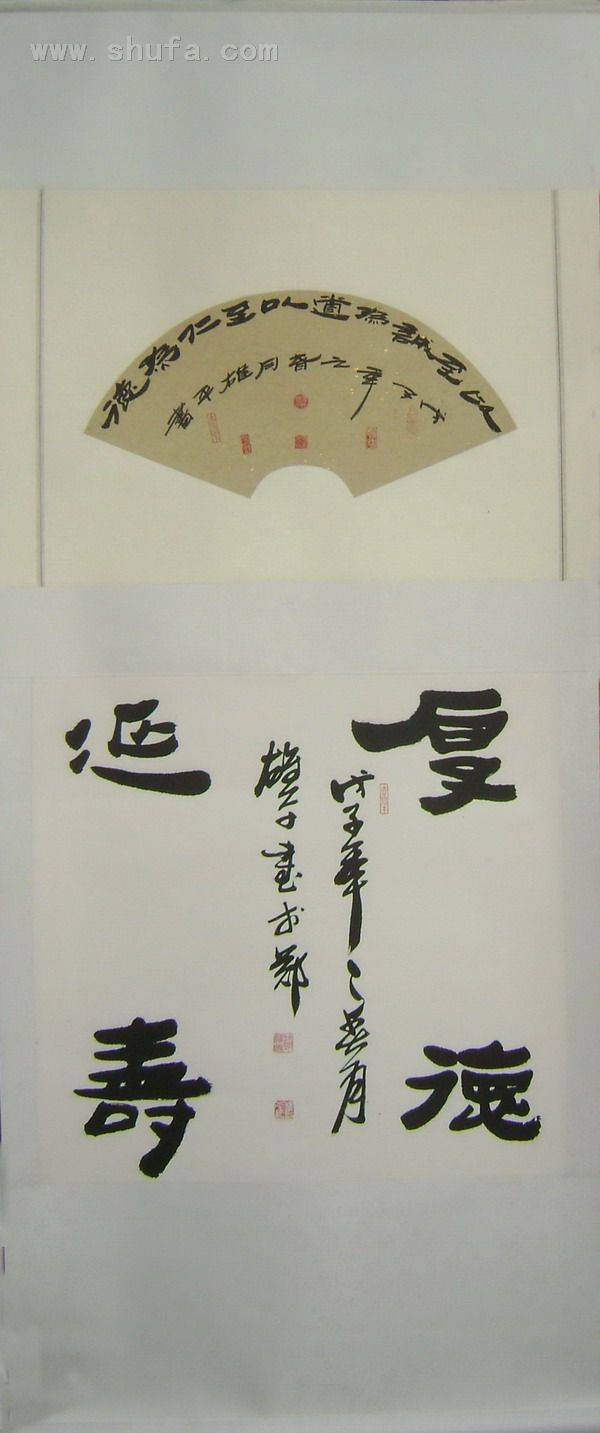 www.shufa.com
以至誠為道以至仁為德
戊子年之春月雄平書
厚德
延壽
戊子年之春月
雄平書於鄭